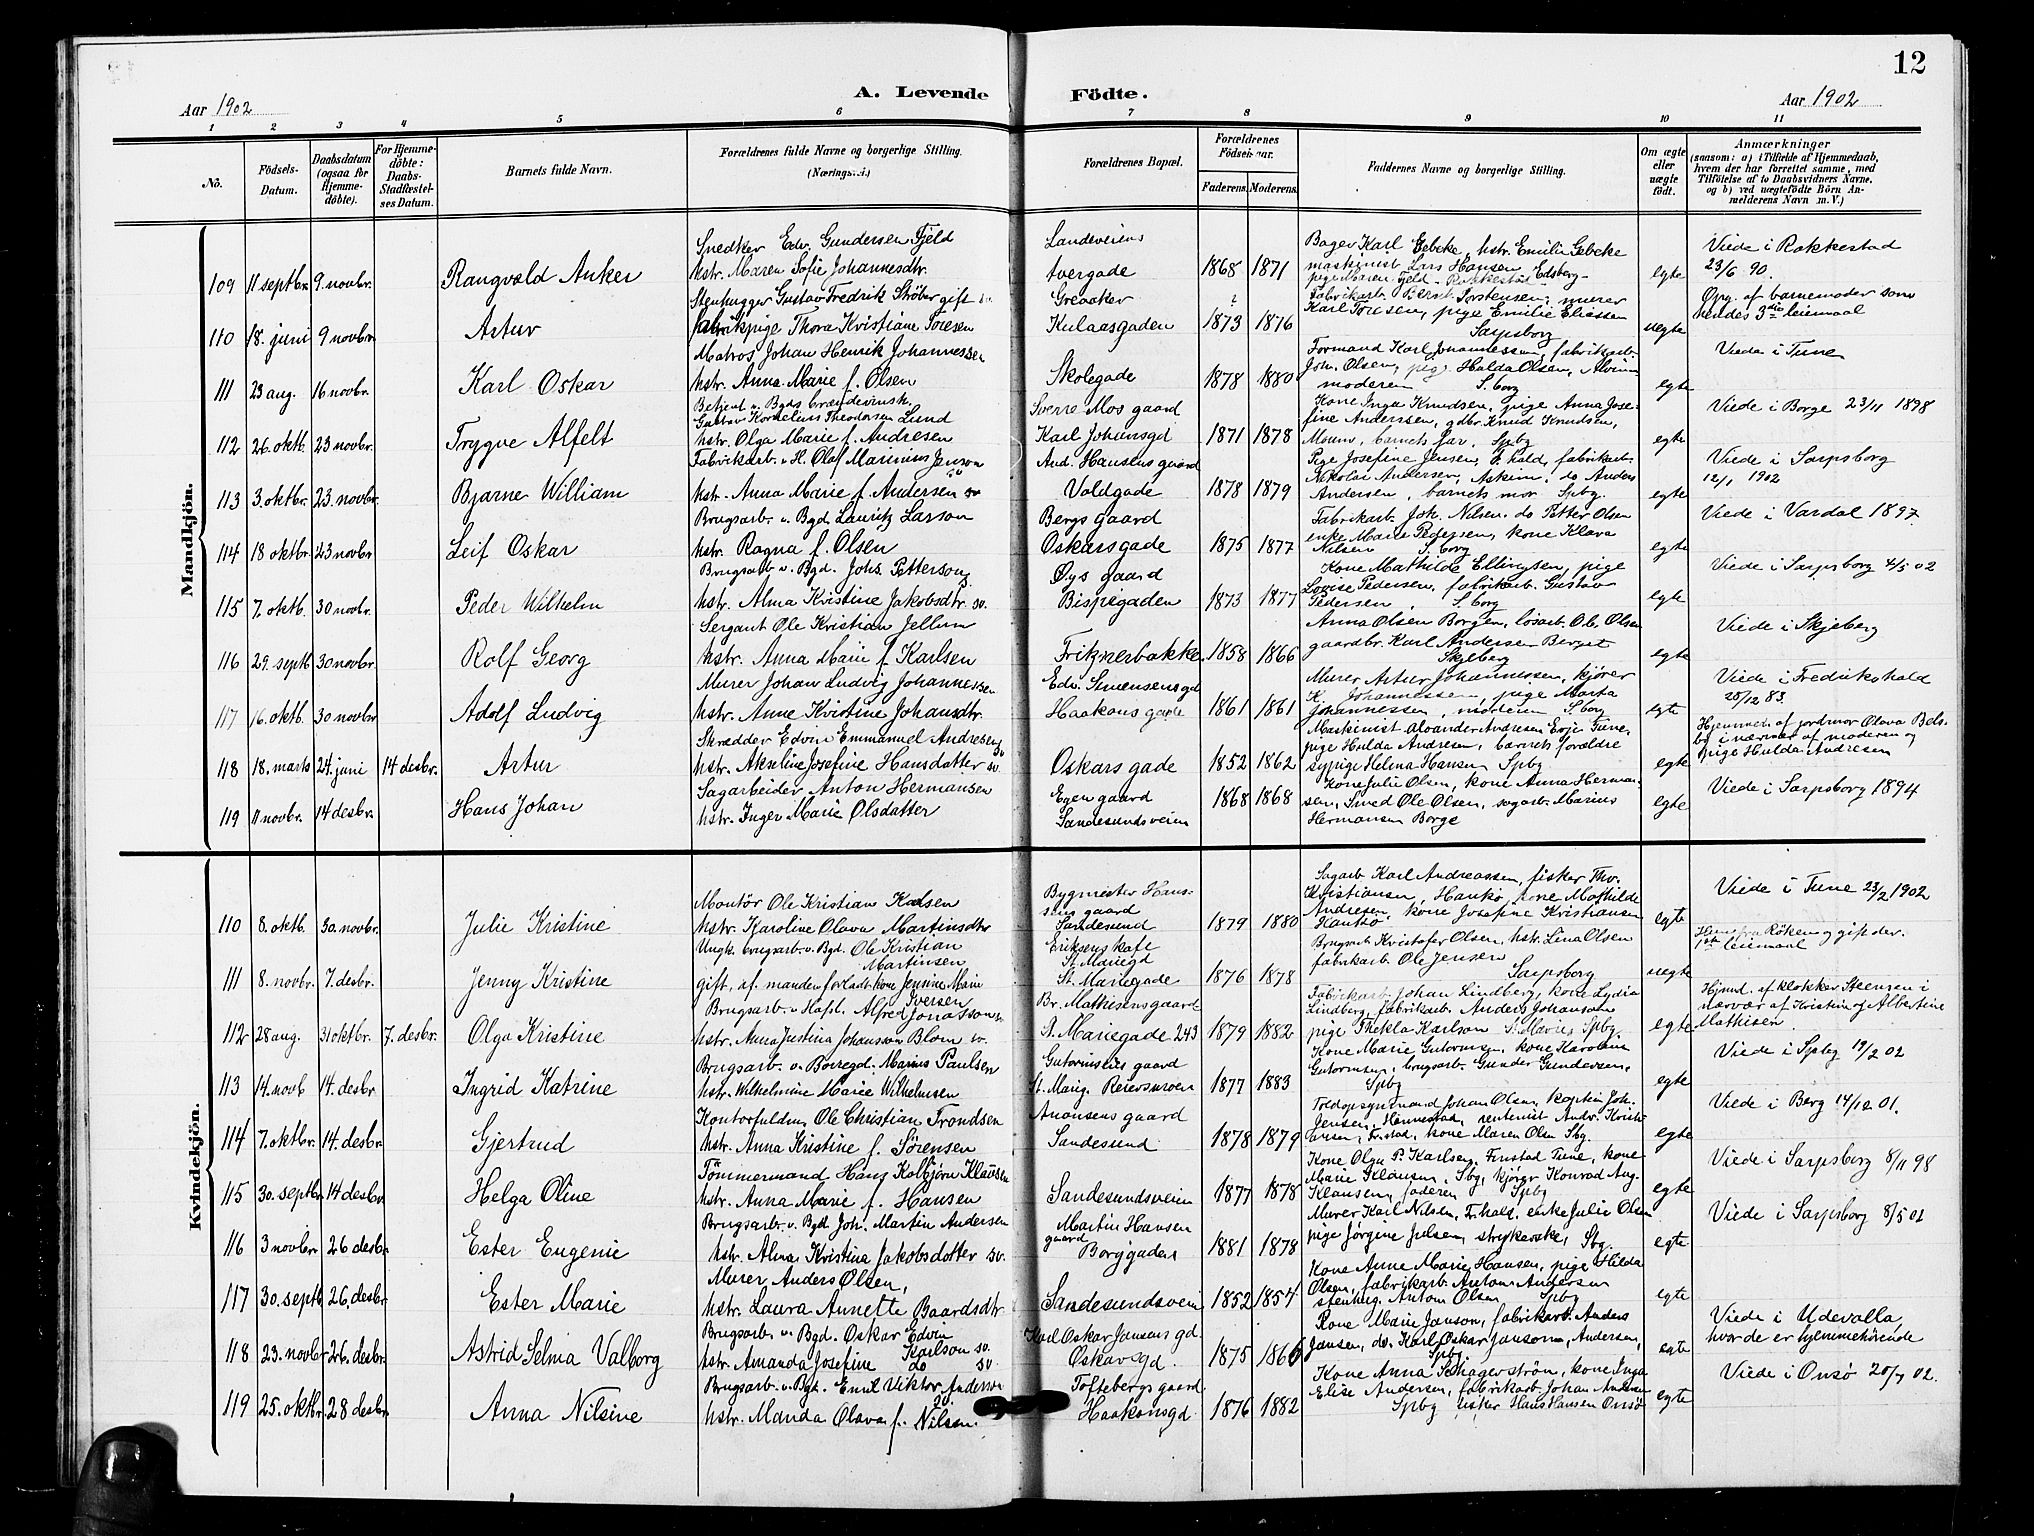 12
Aar 1902
A. Levende Födte.
Aar 1902
1 2 3 4 5 6 7 8 9 10 11
No.
Födsels-Datum.
Daabsdatum (ogsaa for Hjemmedöbte).
For Hjemmedöbte: Daabs-Stadfæstelses Datum.
Barnets fulde Navn.
Forældrenes fulde Navne og borgerlige Stilling. (Næringsvei.)
Forældrenes Bopæl.
Forældrenes Födselsaar.
Faderens. Moderens.
Faddernes Navne og borgerlige Stilling.
Om ægte eller uægte födt.
Anmærkninger
(saasom: a) i Tilfælde af Hjemmedaab, hvem der har forrettet samme, med Tilföielse af to Daabsvidners Navne, og b) ved uægtefödte Börn Anmelderens Navn m.V.)
Mandkjön.
109 11 septbr. 9. novbr. Rangvald Anker Snedker Edv. Gundersen Fjeld hstr. Maren Sofie Johannesdtr. Landeveiens tvergade 1868 1871 Bager Karl Gebcke hstr. Emilie Gebcke maskinist Lars Hansen pige Maren Fjeld Rakkestad Edsberg ægte Viede i Rakkestad 23/6 90.
110 18. juni 9 novbr. Artur Stenhugger Gustav Fredrik Ströber gift sv. fabrikpige Thora Kristiane Toresen Greaaker Kulaasgaden ? 1873 1876 Fabrikarb. Bernt Torstensen, murer Karl Toresen, pige Emilie Eliassen Sarpsborg uegte Opg. af barnemoder som hendes 3die leiemaal
111 23 aug. 16 novbr. Karl Oskar Matros Johan Henrik Johannessen hstr. Anna Marie f. Olsen Skolegade 1878 1880 Formand Karl Johannessen, fabrikarb. Joh. Olsen, pige Hulda Olsen, moderen S. borg egte Viede i Tune
112 26. oktb. 23 novbr. Trygve Alfelt Betjent v. Bgds brændevinsh. Gustav Kornelius Theodorsen Lund hstr. Olga Marie f. Andresen Sverre Mos gaard Karl Johansgd 1871 1878 Kone Inga Knudsen, pige Anna Josefine Anderssen, gdbr. Knud Knudsen, Moum, barnets far, Spbg egte Viede i Borge 23/11 1898
113 3. oktbr. 23. novbr. Bjarne William Fabrikarb. v. H. Olaf Marinius Jenson sv hstr. Anna Marie f. Andersen sv And. Hansens gaard Voldgade 1878 1879 Pige Josefine Jensen, F. hald, fabrikarb. Nikolai Andersen, Askim, do Anders Andersen, barnets mor Spbg. egte Viede i Sarpsborg 12/1 1902
114 18 oktbr. 23 novbr Leif Oskar Brugsarb. v. Bgd. Lauritz Larson hstr. Ragna f. Olsen Bergs gaard Oskarsgade 1875 1877 Fabrikarb. Joh. Nilsen, do Petter Olsen enke Marie Pedersen, kone Klara Nilsen S. borg egte Viede i Vardal 1897
115 7. oktb. 30 novbr. Peder Wilhelm Brugsarb v. Bgd. Johs. Petterson hstr. Alma Kristine Jakobsdtr sv. Öys gaard Bispegaden 1873 1877 Kone Mathilde Ellingsen, pige Lovise Pedersen, fabrikarb. Gustav Pedersen S. borg egte Viede i Sarpsborg 4/5 02
116 29. septb 30 novbr. Rolf Georg Sergant Ole Kristian Jellum hstr. Anna Marie f. Karlsen Friknerbakke 1858 1866 Anna Olsen Borgen, lösarb. Ole Olsen gaardbr. Karl Andersen Berget Skjeberg egte Viede i Skjeberg
117 16. oktb. 30 novbr. Adolf Ludvig Murer Johan Ludvig Johannessen hstr. Anne Kristine Johansdtr. Edv. Simensens gd Haakons gade 1861 1861 Murer Artur Johannessen, kjörer K. Johannessen, pige Marta Johannessen, moderen S. borg egte Viede i Fredrikshald 28/12 83.
118 18. marts 24. juni 14 desbr. Artur Skrædder Edvin Emmanuel Andresen sv hstr. Akseline Josefine Hansdatter sv. Oskars gade 1852 1862 Maskinist Alexander Andresen Evje Tune, pige Hulda Andresen, barnets forældre sypige Helma Hansen Spbg egte Hjemmed. af jordmor Olava Bolsby i nærvær af moderen og pige Hulda Andresen
119 11 novbr. 14 desbr. Hans Johan Sagarbeider Anton Hermansen hstr. Inger Marie Olsdatter Egen gaard Sandesundsveien 1868 1868 Kone Julie Olsen, kone Anna Hermansen, Smed Ole Olsen, sagarb. Marius Hermansen Borge egte Viede i Sarpsborg 1894
Kvindekjön.
110 8. oktb. 30. novbr. Julie Kristine Montör Ole Kristian Karlsen hstr. Karoline Olava Martinsdtr Bygmester Hansens gaard Sandesund 1879 1880 Sagarb Karl Andreassen, fisker Thv. Kristiansen, Hankö, kone Mathilde Andresen, kone Josefine Kristiansen Hankö egte Viede i Tune 23/2 1902
111 8. novbr. 7. desbr. Jenny Kristine Ungk. brugsarb. v. Bgd. Ole Kristian Martinsen gift, af manden forladt kone Jensine Marie Iversen Eriksens kafe St. Mariegd St. Mariegade 1876 1878 Brugsarb Kristofer Olsen, hstr. Lina Olsen fabrikarb Ole Jensen Sarpsborg uegte Hun fra Röken og gift der. 1ste leiemaal
112 28 aug. 31 oktbr. 7. desbr. Olga Kristine Brugsarb. v. Hafsl. Alfred Jonasson sv hstr. Anna Justina Johansson Blom sv. Br. Mathisens gaard St. Mariegade 243 1879 1882 Fabrikarb Johan Lindberg, kone Lydia Lindberg, fabrikarb. Anders Johanson pige Thekla Karlson St. Marieg Spbg. egte Hjemd. af klokker Steensen i nærvær af Kristine og Albertine Mathisen.
113 14. novb 14. desbr. Ingrid Katrine Brugsarb. v. Borregd. Marius Paulsen hstr. Wilhelmine Marie Wilhelmsen Gutormsens gaard St. Marieg. 1877 1883 Kone Marie Gutormsen, kone Karoline Gutormsen, brugsarb. Gunder Gundersen, Spbg egte Viede i Spbg 19/2 02
114 7. oktbr. 14. desbr. Gjertrud Kontorfuldm. Ole Christian Trondsen hstr. Anna Kristine f. Sörensen Anonsens gaard Sandesund 1878 1879 Johan Olsen, kaptein Joh. Jensen, rentenist Andr. Kristensen, Fr.stad, kone Maren Olsen Sbg. egte Viede i Berg 14/12 01.
115 30. septbr 14 desbr Helga Oline Tömmermand Hans Kolbjörn Klausen hstr. Anna Marie f. Hansen Sandesundsveien 1877 1878 Kone Olga P. Karlsen, Tune, kone Marie Klausen, Sbg, kjörer Konrad Aug. Klausen, faderen Spbg egte Viede i Sarpsborg 8/11 98
116 3 novbr. 26 desbr. Ester Eugenie Brugsarb. v. Bgd Joh. Martin Andersen hstr. Alma Kristina Jakobsdotter sv. Martin Hansen gaard Borggaden 1881 1878 Murer Karl Nilsen, Fr.hald, enke Julie Olsen pige Jörgine Jelsen, strykerske, Sbg. egte Viede i Sarpsborg 8/5 02
117 30. septb 26. desbr. Ester Marie Murer Anders Olsen, hstr. Laura Annette Baardsdtr. Sandesundsvein 1852 1854 Kone Anne Marie Hansen, pige Hilda Olsen, fabrikarb. Anton Andersen stenhug. Anton Olsen Spbg egte
118 23. novbr 26. desbr. Astrid Selma Valborg Brugsarb. v. Bgd. Oskar Edvin Karlson sv. hstr. Amanda Josefine do sv. Karl Oskar Jansens gd. Oskarsgd. 1875 1866 Kone Marie Janson, fabrikarb. Anders Jansen, do. Karl Oskar Janson, Andersen, Spbg. egte Viede i Udevalla, hvor de er hjemmehörende
119 25. oktbr. 28 desbr. Anna Nilsine Brugsarb. v. Bgd. Emil Viktor Anderson sv. hstr. Manda Olava f. Nilsen Toftebergs gaard Haakonsgd. 1876 1882 Kone Anna Schagerström, kone Inga Elise Andersen, fabrikarb. Johan Andersen Spbg fisker Hans Hansen Onsö egte Viede i Onsö 20/7 02.